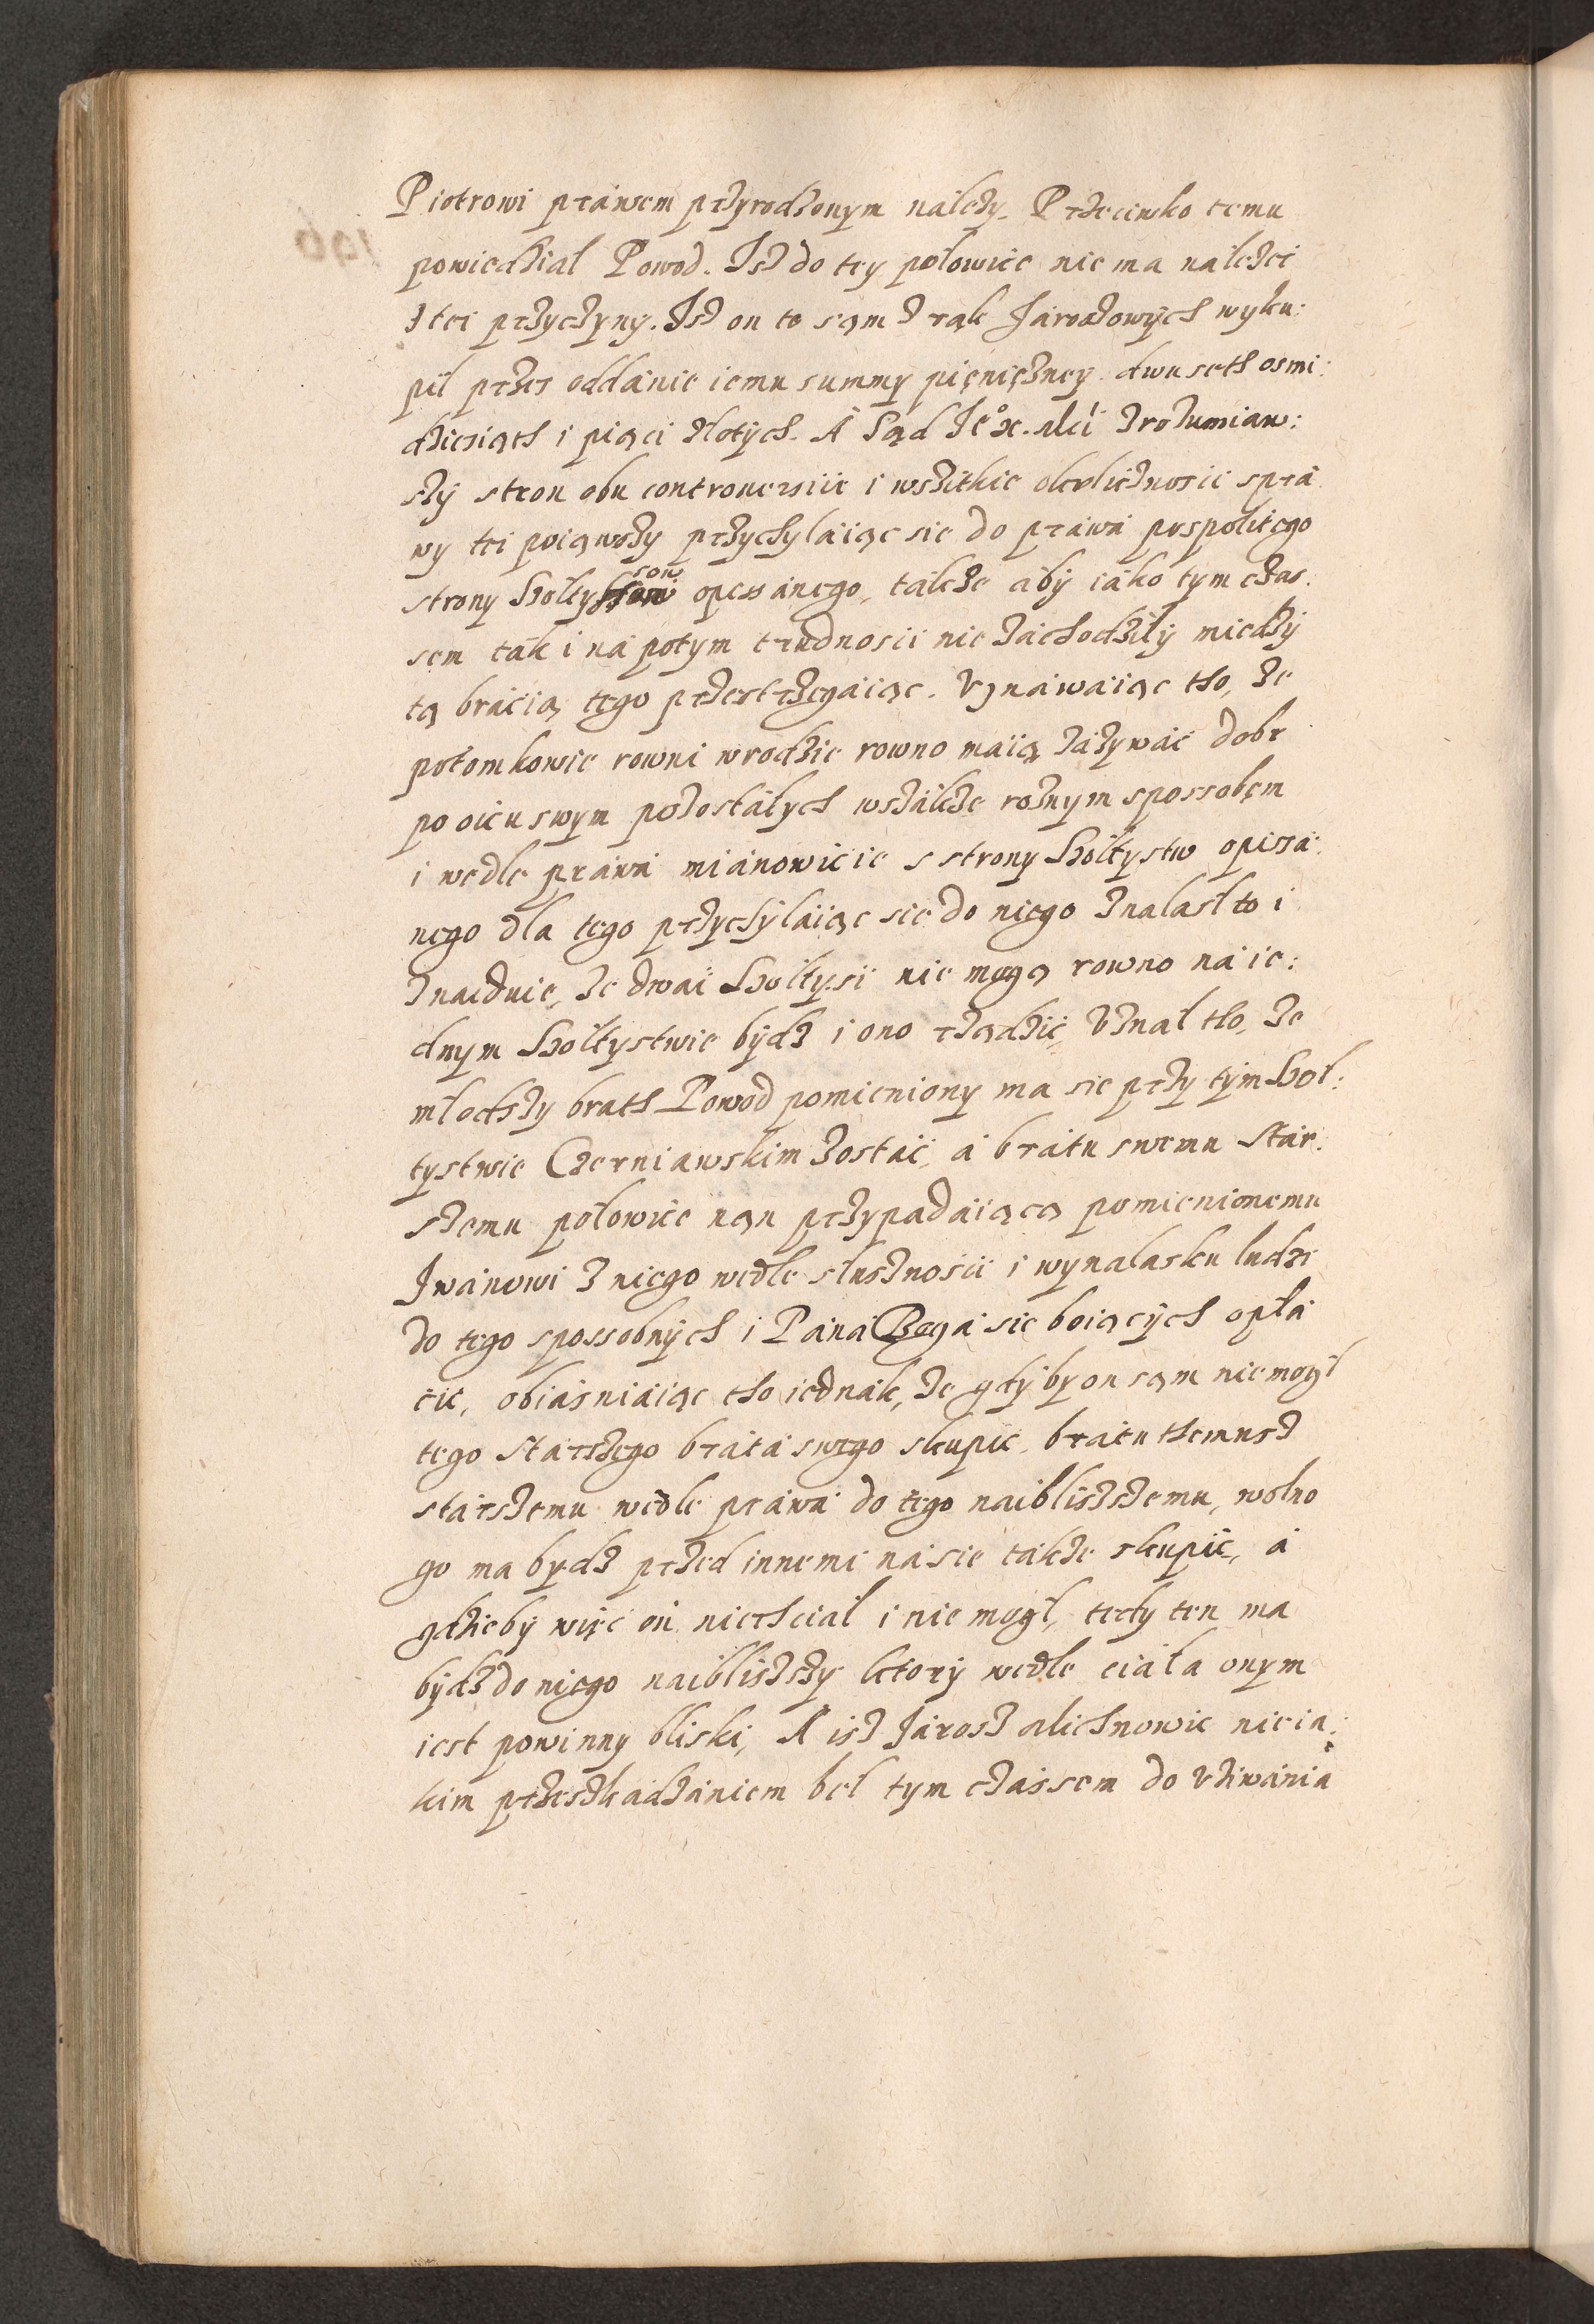 Piotrowi práwem przyrodzonym nálezy. Przeciwko temu
powiedział Powod. Isz do tey połowice nie ma nalezci
z tei przyczyny. Isz on to sąm z rąk Jároszowych wyku:
pił przes oddánie iemu summy pięniężney dwuseth osmi:
dziesiąth i piąci złotych. A Sąd Jeº x. Mci zrozumiaw:
szy stron obu controuersiie i wszitkie okolicznoscie sprá
wy tei poiąwszy przychylaiąc sie do práwá pospolitego
strony Sołtysow opessánego, tákze áby iáko tym czas:
sem ták i ná potym trudnosci nie záchodziły miedzy
tą brácią tego przestrzegáiąc. Vznáwaiąc tho, ze
potomkowie rowni wrodzie rowno máią záżywáć dobr
po oicu swym pozostáłych wszákze roznym spossobęm
i wedle práwá miánowicie s strony Sołtystw opissá:
nego dla tego przychyláiąc sie do niego znalasł to i
znaiduie, ze dwai Sołtysi nie mogą rowno ná ie:
dnym Sołtystwie bydz i ono rządzić, Vznał tho, ze
młodszy brath Powod pomieniony ma sie przy tym Soł:
tystwie Czerniawskim zostáć, á brátu swemu Stár:
szemu połowice nąn przypadáiącą pomienionemu
Iwánowi z niego wedle słusznosci i wynalasku ludzi
do tego spossobnych i Páná Bogá sie boiących opłá
cić, obiásniáiąc tho iednák, ze gdyby on sąm nie mogł
tego Stárszego brátá swego skupić, brátu themusz
stárszemu wedle práwá do tego naibliszszemu, wolno
go ma bydz przed innemi ná sie tákze skupić, á
gdzieby więc on niechciał i nie mogł, tedy ten ma
bydz do niego naibliszszy ktory wedle ciáła onym
iest powinny bliski, A isz Járosz Michnowic nieiá:
kim przeszkadzániem beł tym czássem do vziwánia